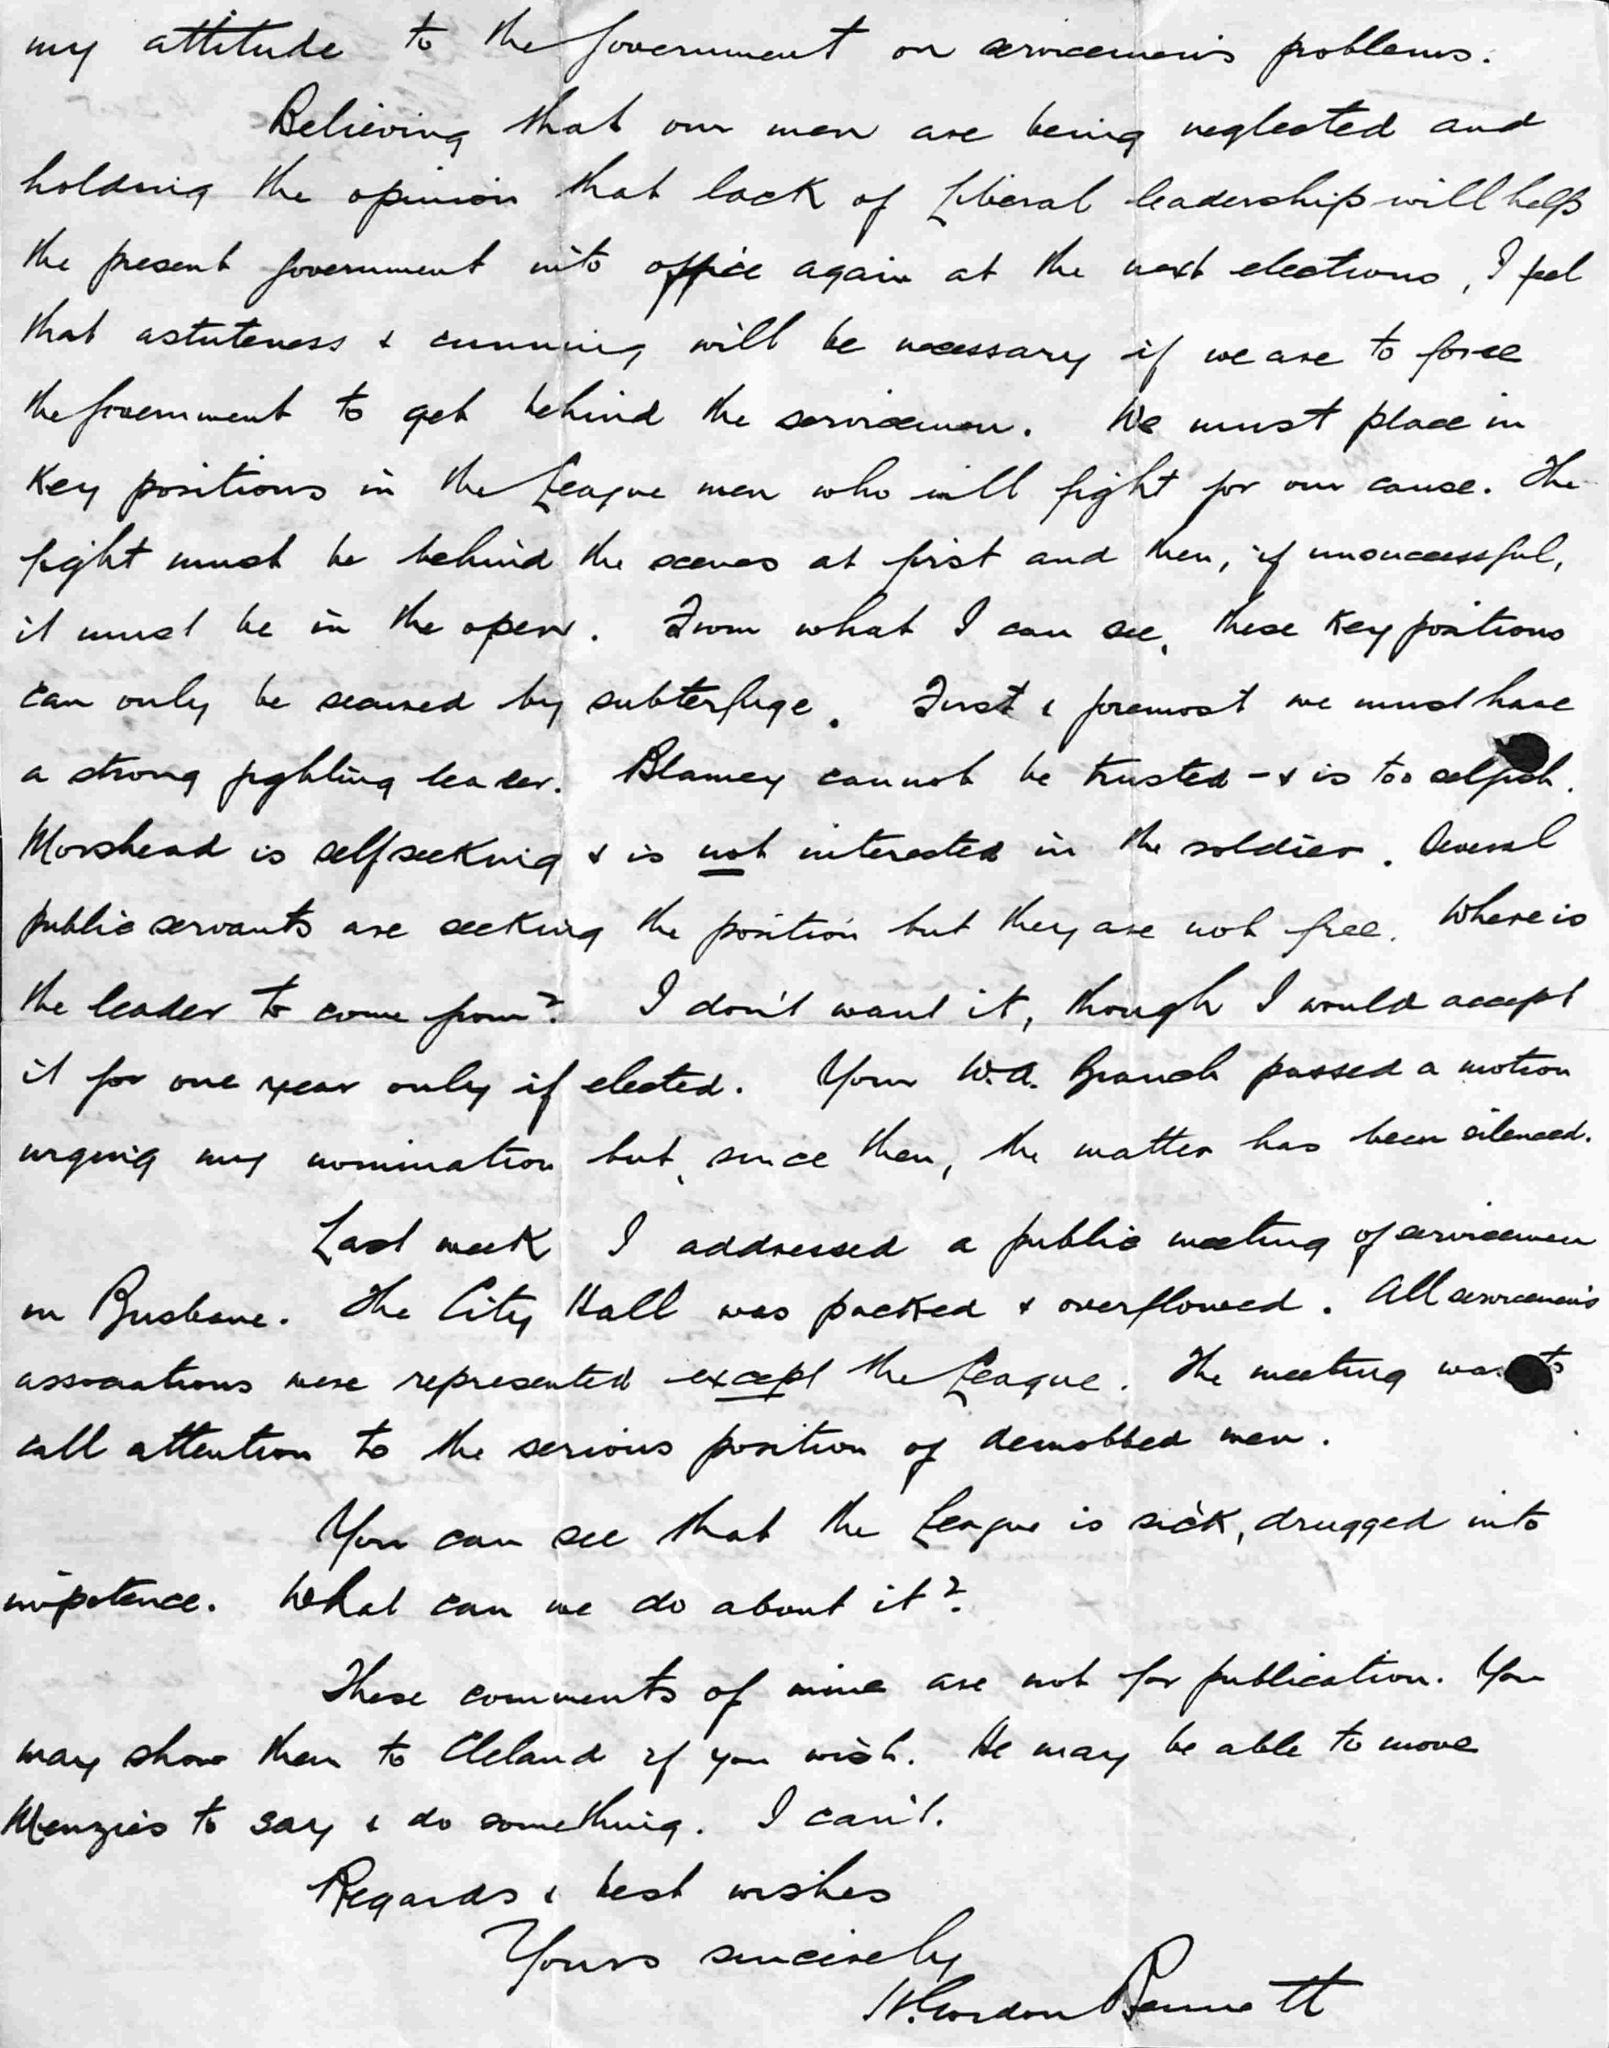 my attitude to the Government on servicemen's problems.
Believing that our men are being neglected and
holding the opinion that lack of Liberal leadership will help
the present Government into office again at the next elections, I feel
that astuteness & cunning will be necessary if we are to force
the Government to get behind the servicemen. We must place in
key positions in the League men who will fight for our cause. The
fight must be behind the scenes at first and then, if unsuccessful,
it must be in the open. From what I can see, these key positions
can only be secured by subterfuge. First & foremost we must have
a strong fighting leader. Blamey cannot be trusted - & is too selfish.
Morshead is selfseeking & is not interested in the soldier. Several
public servants are seeking the position but they are not free. Where is
the leader to come from? I don't want it, though I would accept
it for one year only if elected. Your W.A. Branch passed a motion
urging my nomination but, since then, the matter has been silenced.
Last week I addressed a public meeting of servicemen
in Brisbane. The City Hall was packed & overflowed. All servicemen's
associations were represented except the League. The meeting was to
call attention to the serious position of demobbed men.
You can see that the League is sick, drugged into
impotence. What can we do about it?
These comments of mine are not for publication. You
may show them to Cleland if you wish. He may be able to move
Menzies to say & do something. I can't.
Regards & best wishes
Yours sincerely
H. Gordon Bennett